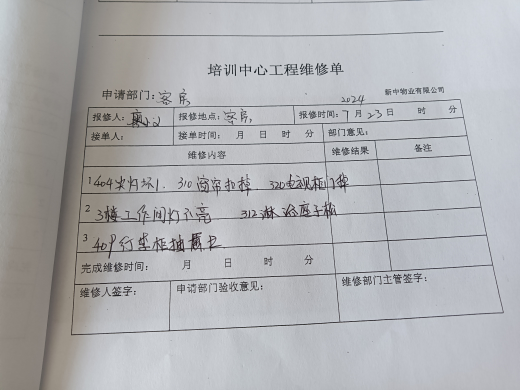 培训中心工程维修单
申请部门：客房 新中物业有限公司
2024
报修人： 报修地点：客房 报修时间：7月23日 时 分
接单人： 接单时间： 月 日 时 分 部门意见：
维修内容 维修结果 备注
1 404尖灯坏1. 310窗帘扣掉. 320电视柜门掉
2 3楼工作间灯不亮 312淋浴座子松
3 409行李柜抽屉卡
完成维修时间： 月 日 时 分
维修人签字： 申请部门验收意见： 维修部门主管签字：